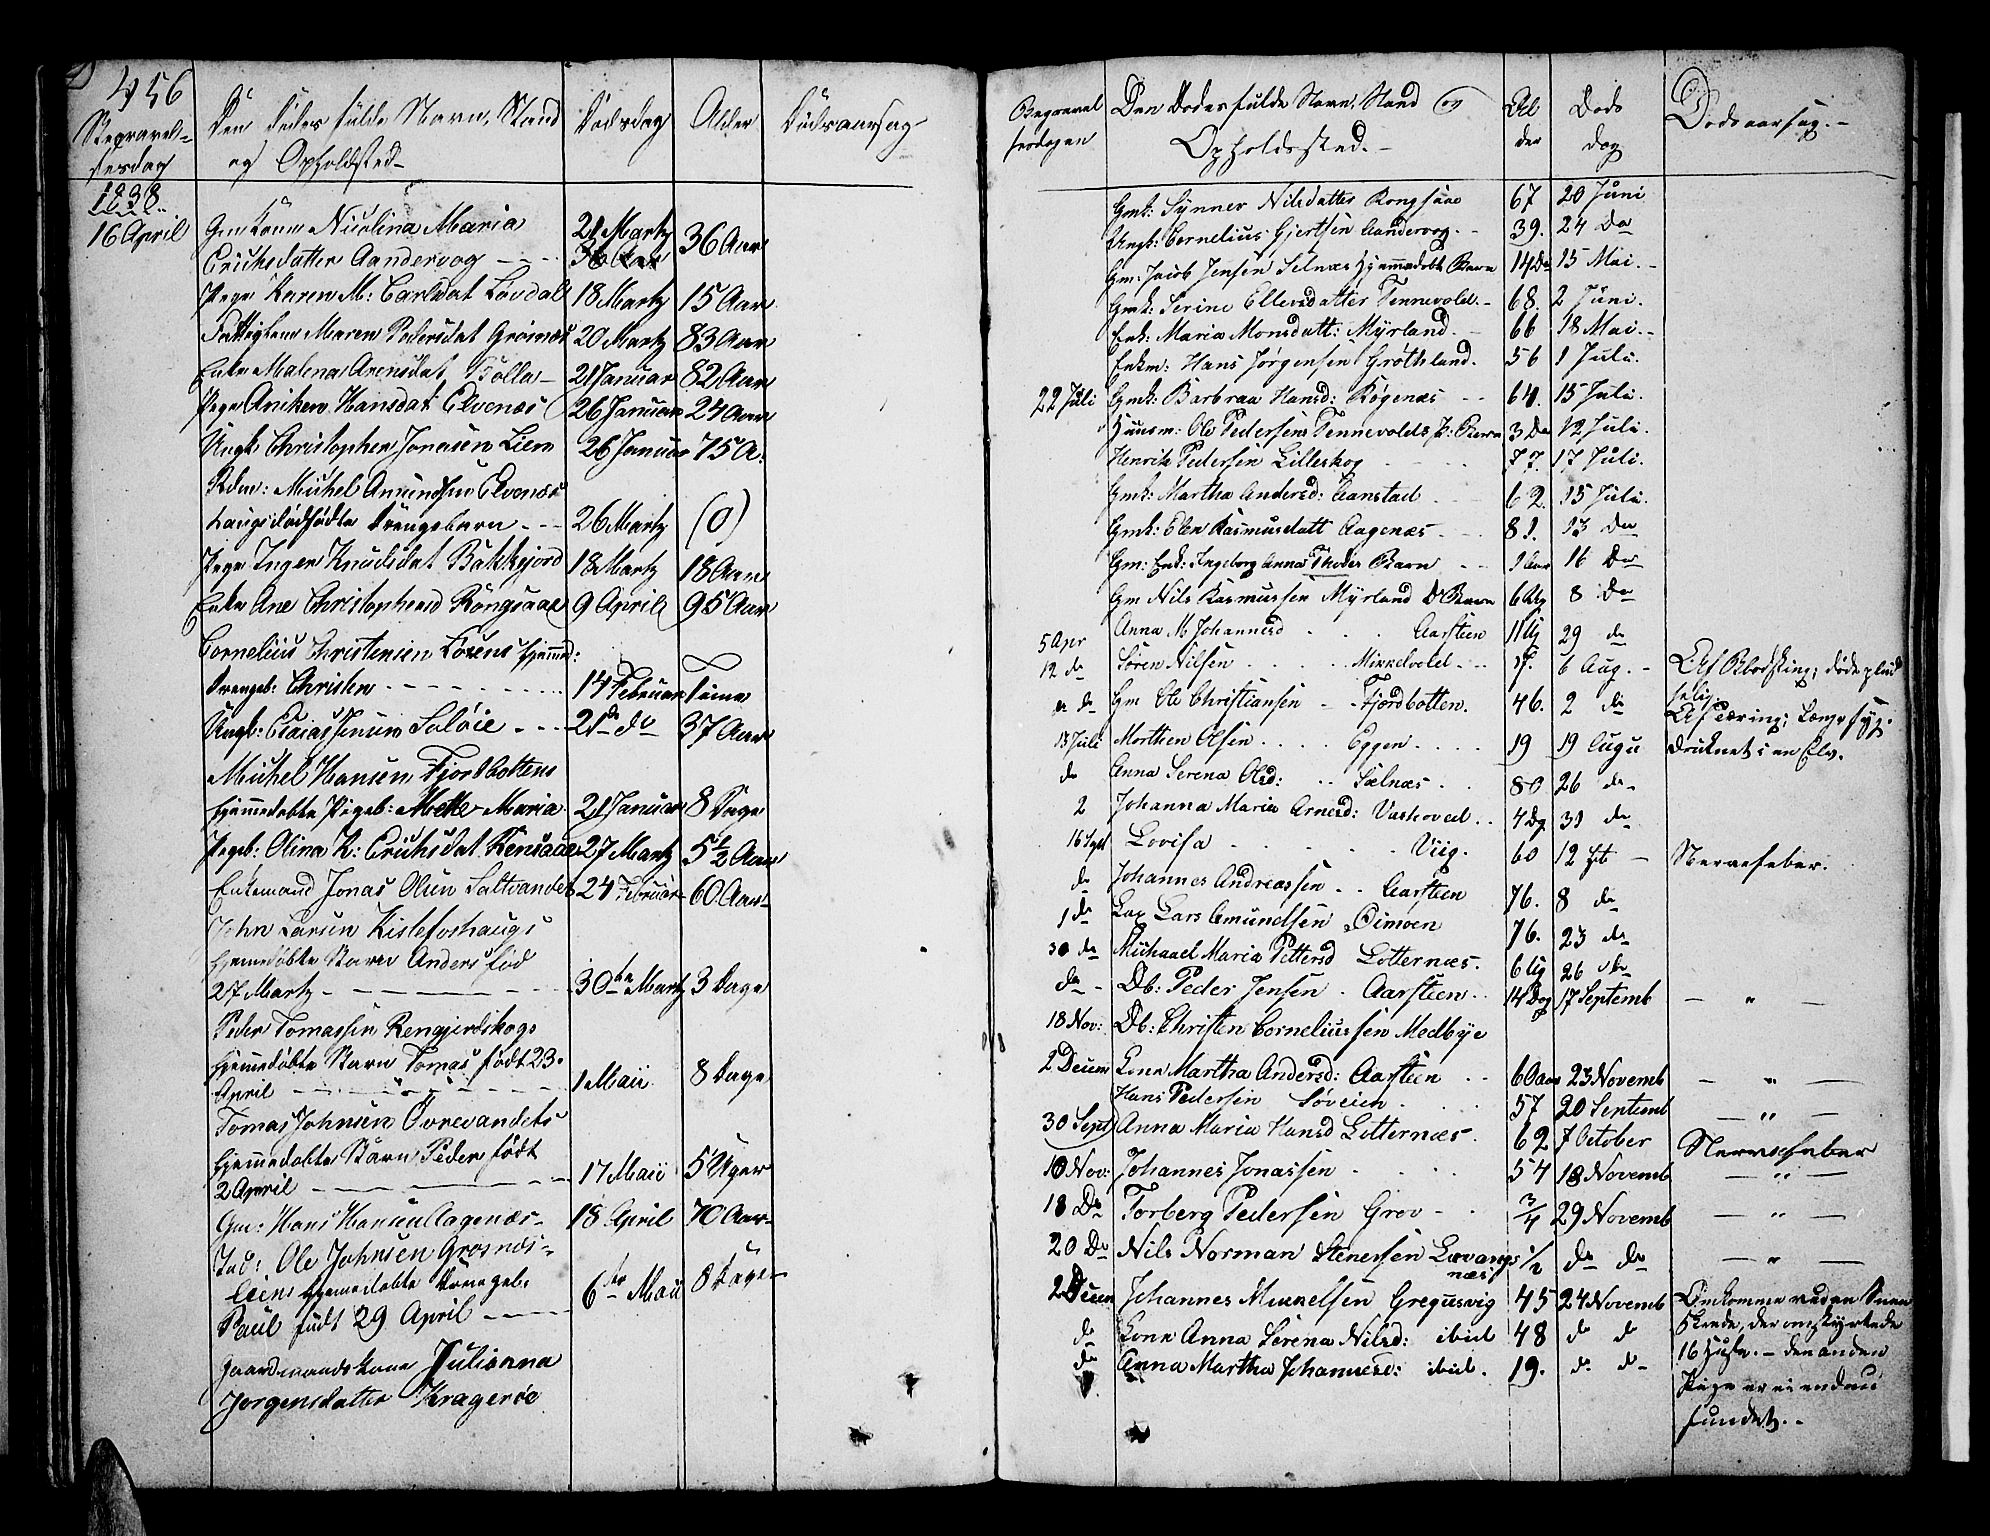 456
Begravel-
sesdag
Den Dødes fulde Navn, Stand
og Opholdsted
Dødsdag
Alder
Dødsaarsag
1838
16 April
Gm Kone Nicolina Maria
Erichsdatter Aandervog
21 Martz
36 Aar
Pige Karen M: Carlsdat Løvdal
18 Martz
15 Aar
Fattiglem Maren Pedersdat Grøsnæs
20 Martz
83 Aar
Enke Malena Arensdat Tolla
21 Januar
82 Aar
Pige Aniken Hansdat Elvenæs
26 Januar
24 Aar
Ungk. Christopher Jonasen Lien
26 Januar
75 A.
Rdm: Michel Amundsen Elvenæs
Laugs dødfødte Drengebarn
26 Martz
(0)
Pige Inger Knudsdat Bakkejord
18 Martz
18 Aar
Enke Ane Christophersd Rongsaae
9 April
95 Aar
Cornelius Christensen hjemmed:
Drengeb: Christen
14 Februar
Ungk: Esaias Jensen Saløie
21de do
37 Aar
Michel Hansen Fjordbottens
hjemmedøbte Pigeb: Mette Maria
21 Januar
8 Dage
Pigeb: Olina K: Erichsdat Rensaae
27 Martz
5 1/2 Aar
Enkemand Jonas Olsen Saltvandet
24 Februar
60 Aar
John Larsen Kisleforhaugs
hjemmedøbte Barn Anders fød
27 Martz
30te Martz
3 Dage
Peder Tomassen Rengjerdskogs
hjemmedøbte Barn Tomas født 23.
April
1 Maii
8 Dage
Tomas Johnsen Øvrevandets
hjemmedøbte Barn Peder født
2 April
17 Maii
5 Uger
Gm: Hans Hansen Aagenæs
18 April
70 Aar
Ind: Ole Johnsen Grosnæs-
eiens hjemmedøbte Drengeb:
Paul født 29 April
6te Maii
8 Dage
Gaardmandskone Julianna
Jørgensdatter Kragerøe
Begravel
sesdagen
Den Dødes fulde Navn, Stand og
Opholdssted.
Al
der
Døds
dag
Dødsaarsag.
Gmk: Synner Nilsdatter Rongsaae 67 20 Juni
Ungk: Cornelius Gjertsen Aandervog. 39. 24 Do
Gm: Jacob Jensen Selnæs Hjemmedøbte Barn 14 Da 15 Mai.
Gmk: Serine Ellevsdatter Tennevold. 68. 2 Juni.
Enk: Maria Monsdatt: Myrland. 66 18 Mai.
Enkm: Hans Jørgensen Grøthland. 56 1 Juli.
22 Juli Gmk: Barbraa Hansd: Røgenæs 64. 15 Juli.
Huusm: Ole Pedersens Tennevolds h: Barn 3 Da 12 Juli.
Henrik Pedersen Lilleskog 77. 17 Juli.
Gmk: Martha Andersd: Aanstad 62. 15 Juli.
Gmk: Elen Rasmusdatt Aagenæs 81. 13 Do
Gm: Enk: Ingeborg Anna Thodes Barn 1 Aar 16 Do
Gm Nils Rasmussen Myrland D Barn 6 Ug 8 Do
5 Apr Anna M. Johannesd Aarsteen 11 Ug 29 do
12 do Søren Nilsen Mikkelvold 6 Aug. Af Blodsting; døde plud
selig.
do Gm Ole Christiansen Fjordbotten. 46. 2 do Af Tæring; længe syg.
13 Juli Morthen Olsen Eggen 19 19 Augu druknet i en Elv.
do Anna Serena Olsd: Sælnæs 80 26 do
2 Johanna Maria Arnesd: Vashoved 4 Dg 31 do
16 Sept Lovisa Viig. 60 12 Nervefeber.
do Johannes Andreassen Aarsteen 76. 8 do
1 do Lax Lars Amundsen Dimoen 76. 23 do
30 do Michaael Maria Pettersd Lotternæs. 6 Ug 26 do
do Db: Peder Jensen Aarsteen 14 Dag 17 Septemb — " —
18 Nov: Db: Christen Corneliussen Medbye
2 Decem Kone Martha Andersd: Aarsteen 60 aar 23 Novemb — " —
Hans Pedersen Søveien 57 20 Septemb — " —
30 Sept Anna Maria Hansd Lotternæs. 62 7 October Nervefeber
10 Nov: Johannes Jonassen 54 18 Novemb — " —
18 Do Torberg Pedersen Grov 3/4 29 Novemb — " —
20 Do Nils Norman Stenersen Løvangs
næs 1/2 do do — " —
2 Decem Johannes Mikkelsen Gregusvig 45 24 Novemb Omkomne ved en Snee
do Kone Anna Serena Nilsd: ibid 48 do do skrede, der omstyrtede
do Anna Martha Johannesd: ibid. 19. do do 16 Huse. – den anden
Pige er ei endnu
funden.